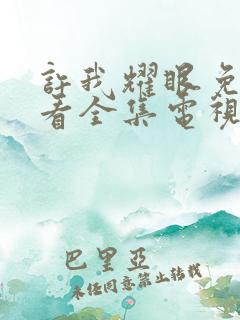 許我耀眼免
看全集電視
巴里亞
未经同意禁止转载